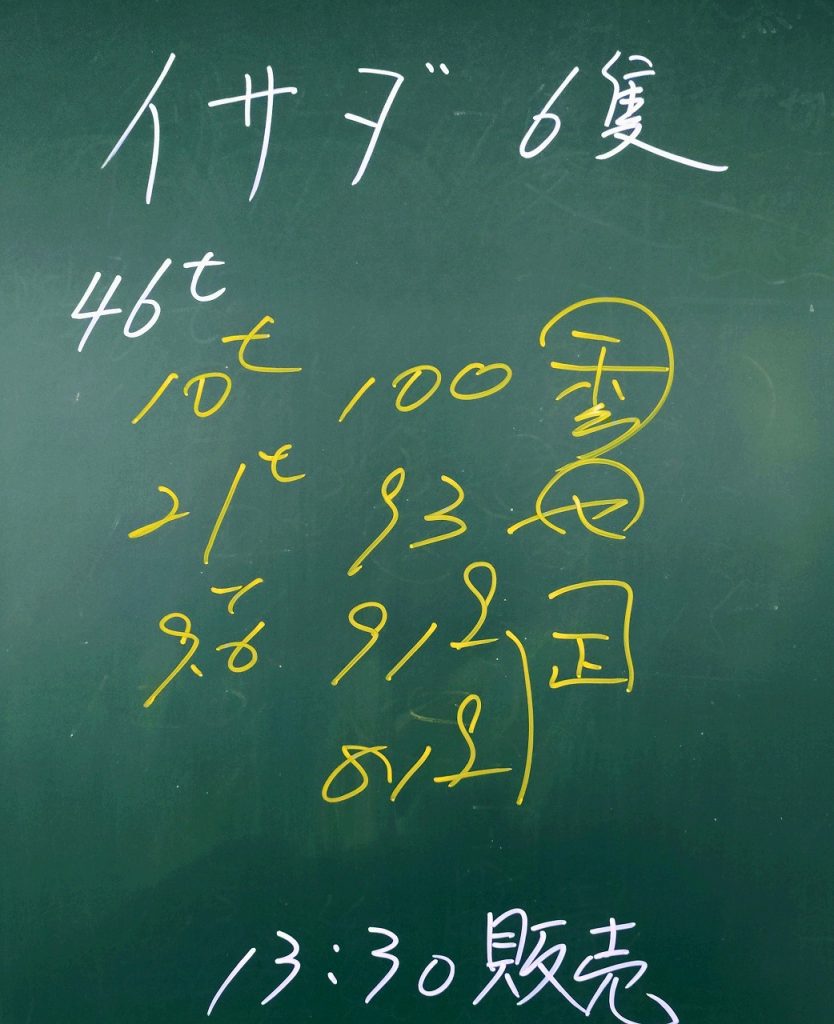 イサダ 6隻
46t
10t 100
21t 93
9.6t 91
81
13:30販売